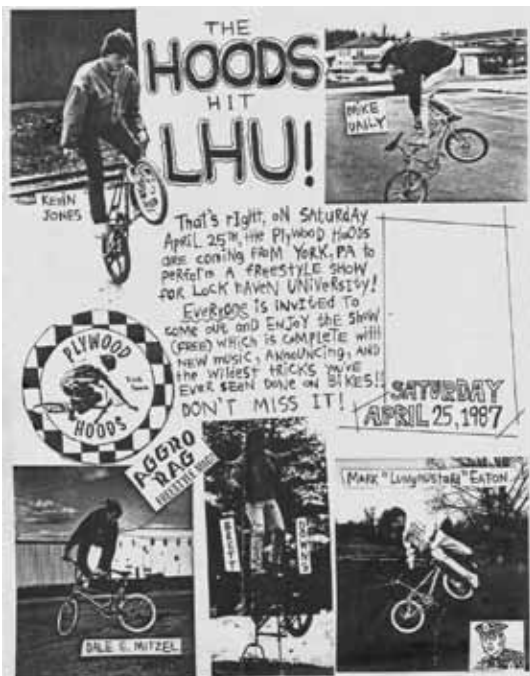 THE
HOODS
HIT
LHU!
KEVIN
JONES
MIKE
DAILY
That's right, on Saturday
April 25th, the Plywood Hoods
are coming from York, PA to
perform a freestyle show
for Lock Haven University!
Everyone is invited to
come out and enjoy the show
(FREE) which is complete with
new music, announcing, and
the wildest tricks you've
ever seen done on bikes!!
DON'T MISS IT!
SATURDAY
APRIL 25, 1987
PLYWOOD
HOODS
AGGRO
RAG
FREESTYLE MAG
DALE E. MITZEL
BRETT
DOWNS
MARK "LUNGMUSTARD" EATON